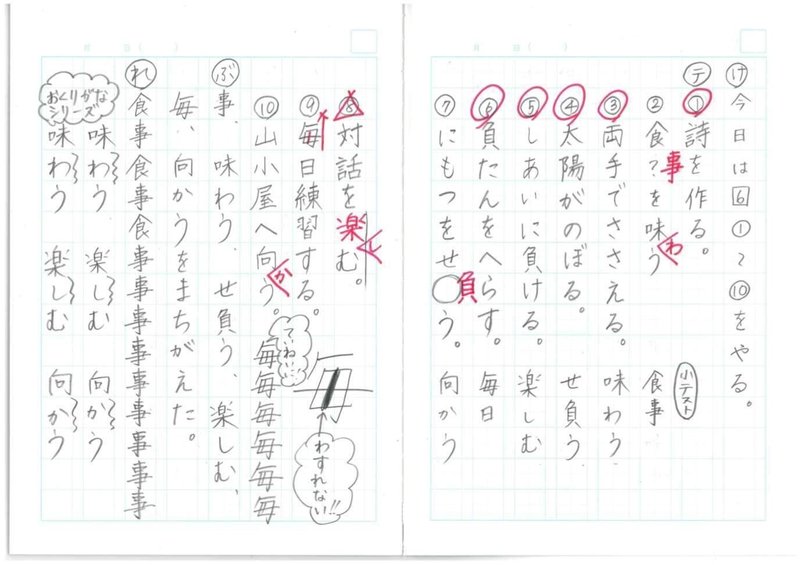 け 今日は6①〜⑩をやる。
テ ①詩を作る。
②食?を味う
事
わ
③両手でささえる。
④太陽がのぼる。
⑤しあいに負ける。
⑥負たんをへらす。
⑦にもつをせ○う。
負
小テスト
食事
味わう
せ負う
楽しむ
毎日
向かう
⑧対話を楽む。
し
⑨毎日練習する。
⑩山小屋へ向う。
か
ていねいに
毎毎毎毎毎毎
わすれない!!
ぶ 事、味わう、せ負う、楽しむ、
毎、向かうをまちがえた。
れ 食事食事食事事事事事事事事事
おくりがなシリーズ
味わう 楽しむ 向かう
味わう 楽しむ 向かう